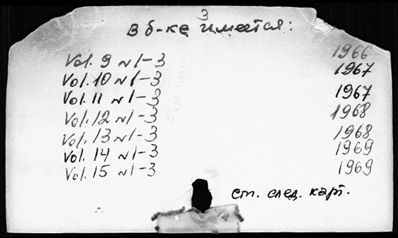 3
В б-ке имеется:
Vol. 9 №1-3 1966
Vol. 10 №1-3 1967
Vol. 11 №1-3 1967
Vol. 12 №1-3 1968
Vol. 13 №1-3 1968
Vol. 14 №1-3 1969
Vol. 15 №1-3 1969
см. след. карт.